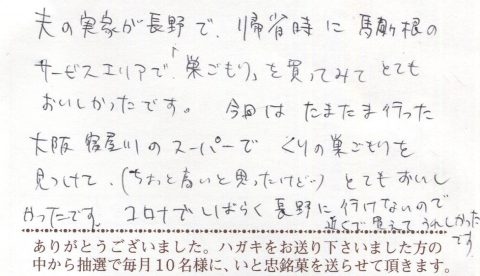 夫の実家が長野で、帰省時に駒ヶ根の
サービスエリアで「巣ごもり」を買ってみてとても
おいしかったです。今回はたまたま行った
大阪寝屋川のスーパーでくりの巣ごもりを
見つけて、(ちょっと高いと思ったけど…)とてもおいし
かったです。コロナでしばらく長野に行けないので
近くで買えてうれしかった
です
ありがとうございました。ハガキをお送り下さいました方の
中から抽選で毎月10名様に、いと忠銘菓を送らせて頂きます。